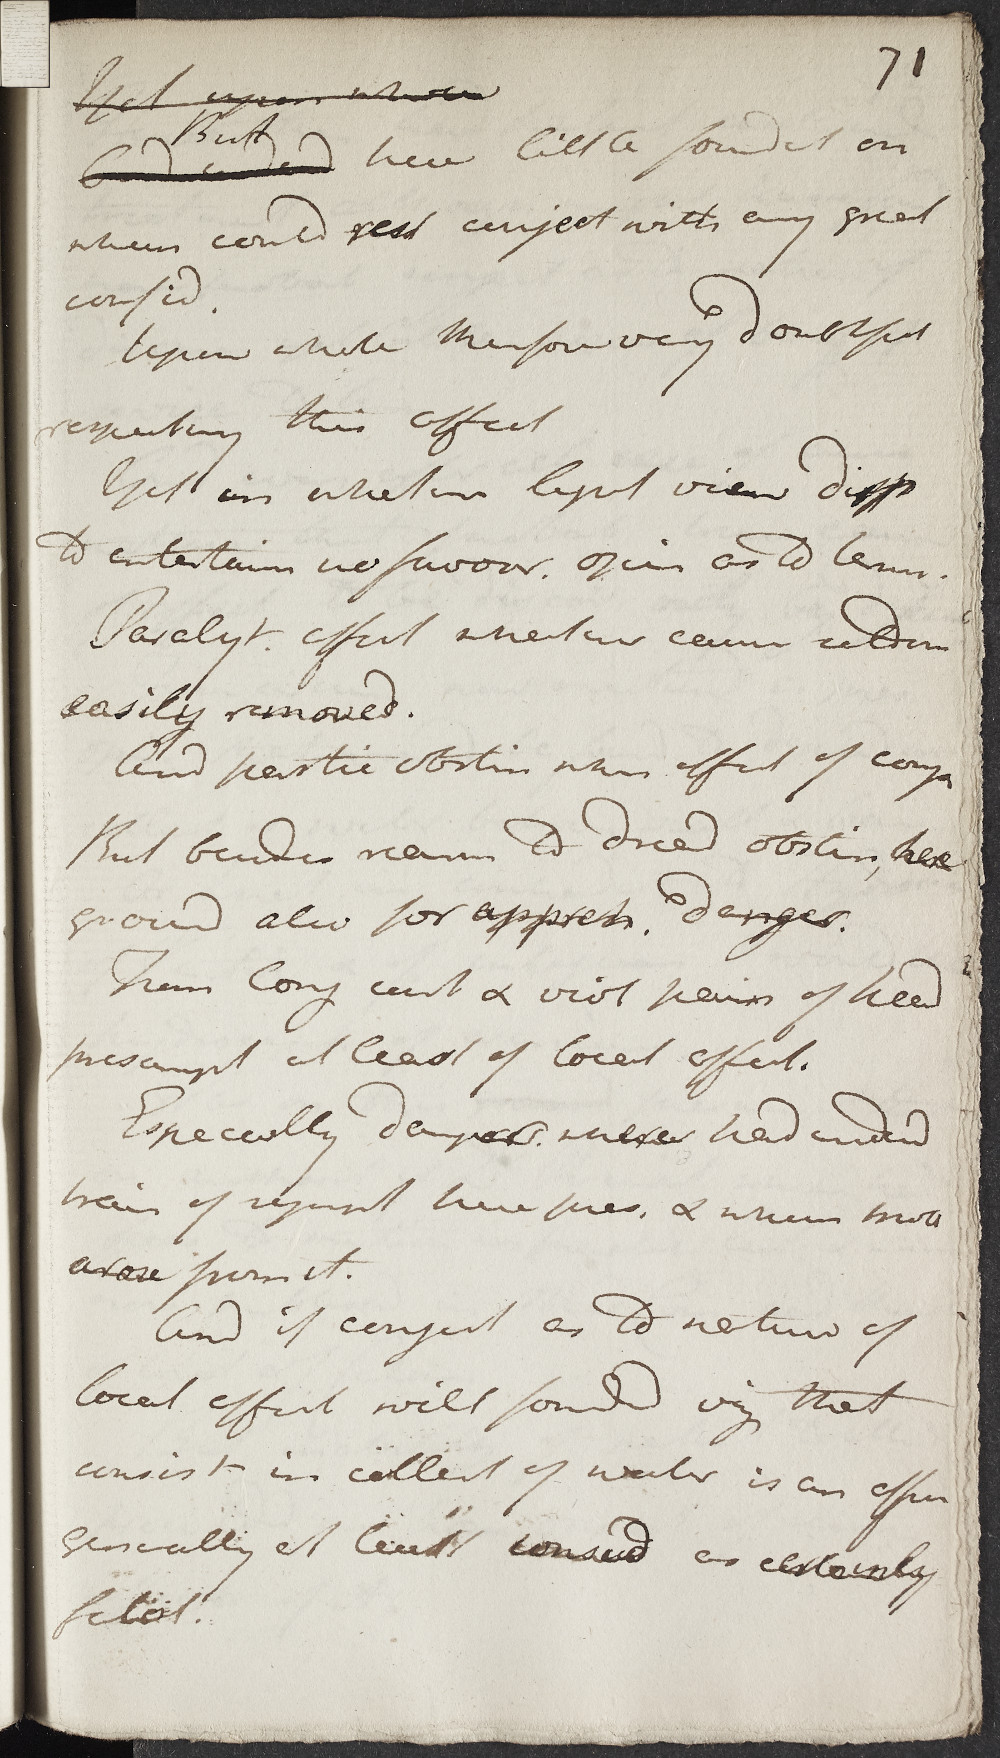 71
Yet upon whole
But
And indeed here little foundat on
whun could rest conject with any great
confid.
Upon whole therefore very doubtful
respecting this affect
Yet in whatever light view disp
to entertain no favour. opin as to term.
Paralyt. affect whatever cause seldom
easily removed.
And partic obstin when effect of cong
But besides reason to dread obstin, here
ground also for appreh. danger.
From long cont & viol pain of head
presumpt at least of local affect.
Especially danger. where head indeed
train of sympt here pres. & where most
arose from it.
And if conject as to nature of
local affect well founded viz that
consist in collect of water is an affec
generally at least consid as certainly
fatal.